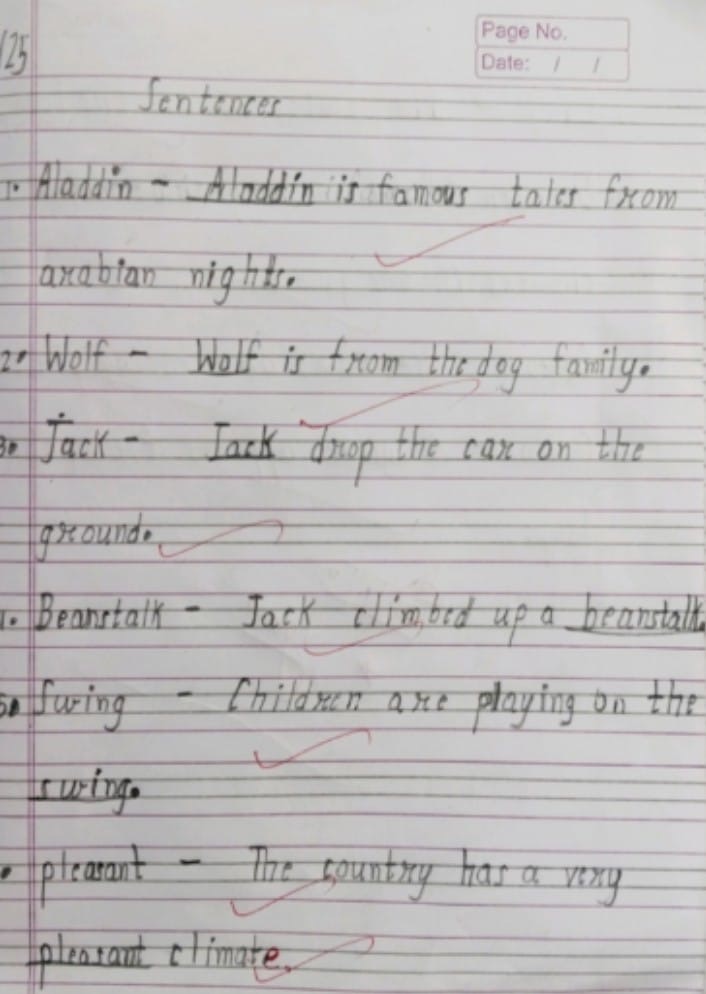 /25
Page No.
Date: / /
Sentences
1. Aladdin - Aladdin is famous tales from
arabian nights.
2. Wolf - Wolf is from the dog family.
3. Jack - Jack drop the car on the
ground.
4. Beanstalk - Jack climbed up a beanstalk.
5. Swing - Children are playing on the
swing.
. pleasant - The country has a very
pleasant climate.